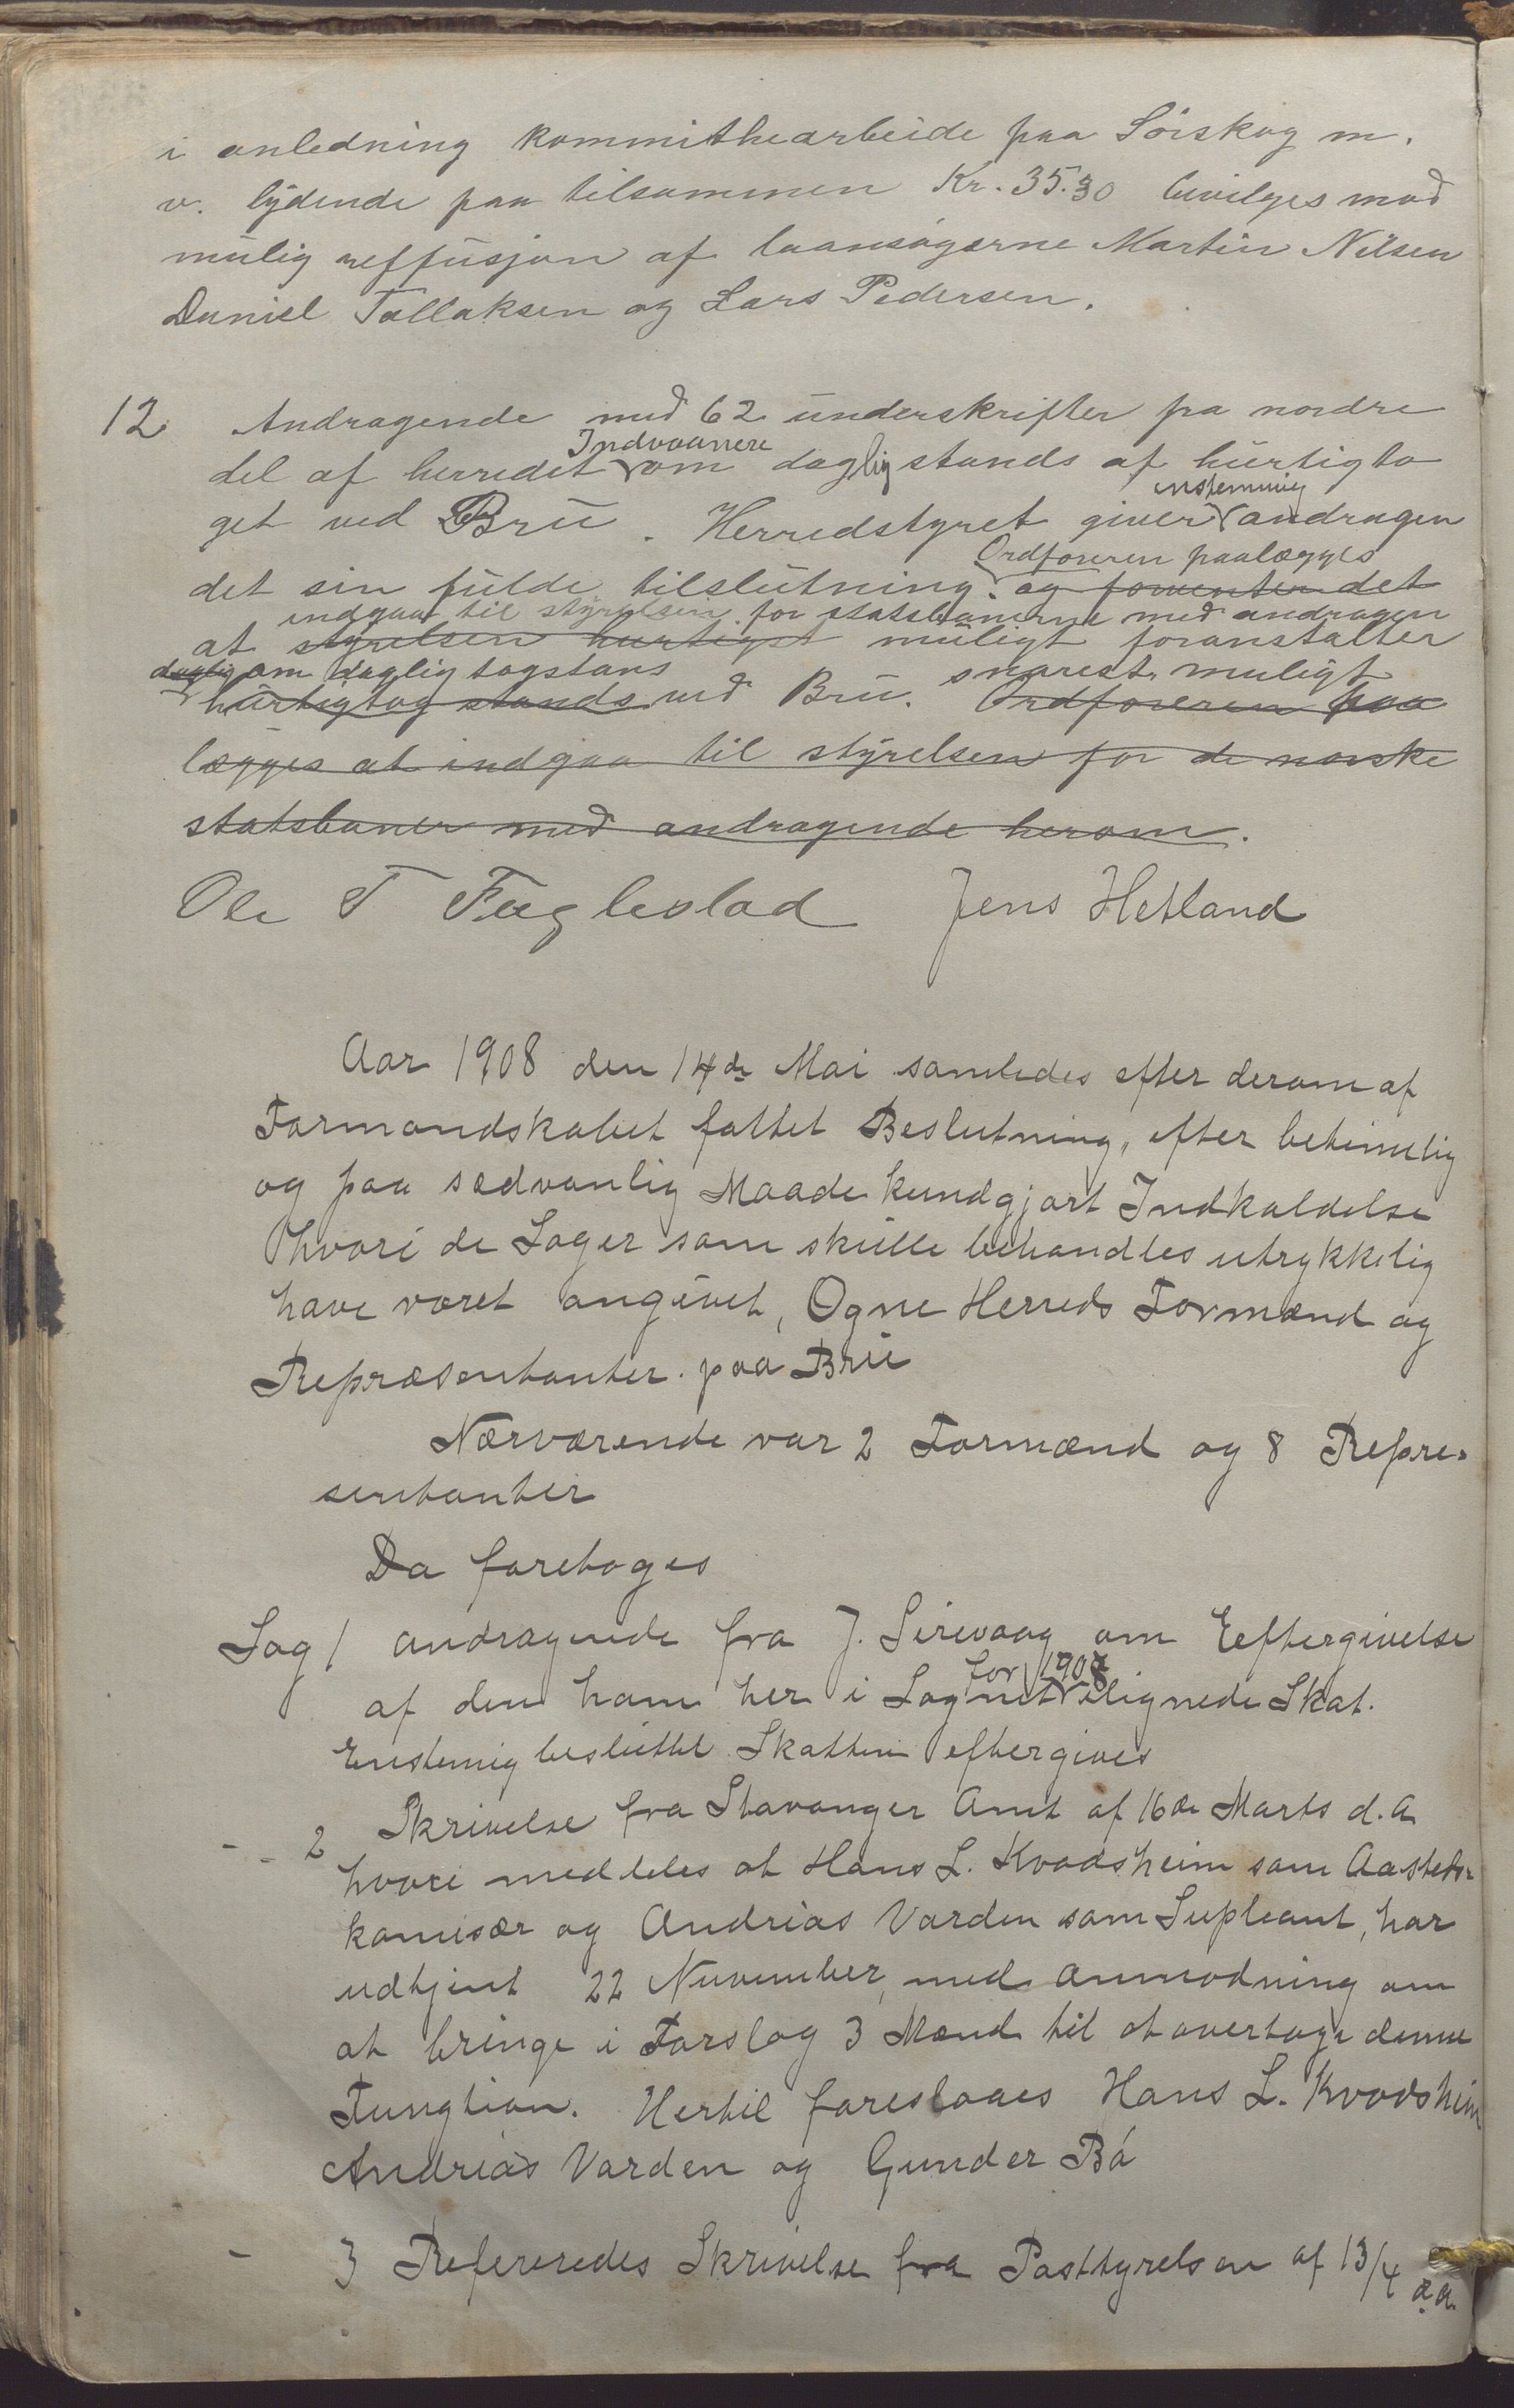 i anledning kommithearbeide paa Sörskog m.
v. lydende paa tilsammen Kr. 35.30 bevilges mod
mulig reffusjon af laansögerne Martin Nilsen
Daniel Tallaksen og Lars Pedersen.
12 Andragende med 62 underskrifter fra nordre
Indvaanere
del af herredet om daglig stands af hurtigto
enstemmig
get ved Bru. Herredstyret giver andragen
Ordföreren paalægges
det sin fulde tilslutning. og forventer det
indgaa til styrelsen for statsbanerne med andragen
at styrelsen hurtigst muligt foranstalter
daglig om daglig togstans snarest muligt
hurtigtog stands ved Bru. Ordföreren paa
lægges at indgaa til styrelsen for de norske
statsbaner med andragende herom.
Ole T Fuglestad Jens Hetland
Aar 1908 den 14de Mai samledes efter derom af
Formandskabet fattet Beslutning, efter betimelig
og paa sædvanlig Maade kundgjort Indkaldelse
hvori de Sager som skulle behandles utrykkelig
have været angivet, Ogne Herreds Formænd og
Repræsentanter. paa Bru
Nærværende var 2 Formænd og 8 Repre-
sentanter
Da foretoges
Sag 1 andragende fra J. Sirevaag om Eeftergivelse
for 1908
af den ham her i Sognet ilignede Skat.
Enstemig besluttet Skatten eftergives
- - 2 Skrivelse fra Stavanger Amt af 16de Marts d.A
hvori meddeles at Hans L. Kvadsheim som Aasteds-
komisær og Andrias Varden som Supleant, har
udtjent 22 Nuvember, med anmodning om
at bringe i Forslag 3 Mænd til at overtage denne
Fungtion. Hertil foreslaaes Hans L. Kvodsheim
Andrias Varden og Gunder Bö
- 3 Refereredes Skrivelse fra Poststyrelsen af 13/4 d.a.